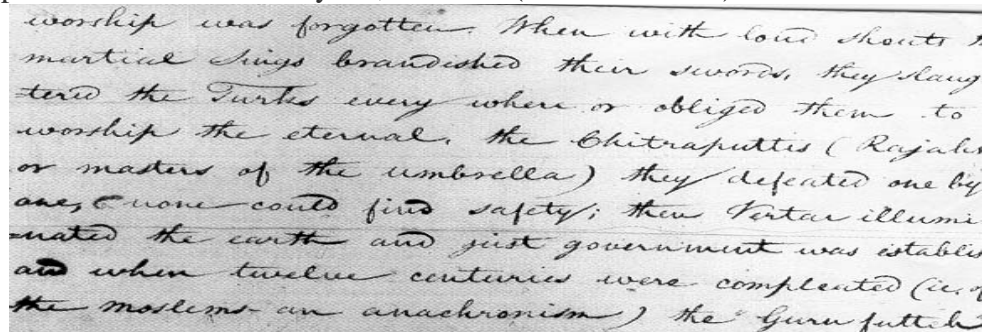 worship was forgotten. When with loud shouts
martial Sings brandished their swords, they slaug
tered the Turks every where or obliged them to
worship the eternal. the Chitraputtis ( Rajahs
or masters of the umbrella ) they defeated one by
one, & none could find safety; then Vertue illumi
=nated the earth and just government was establis
and when twelve centuries were compleated (ie. of
the moslems - an anachronism ) the Guru futteh